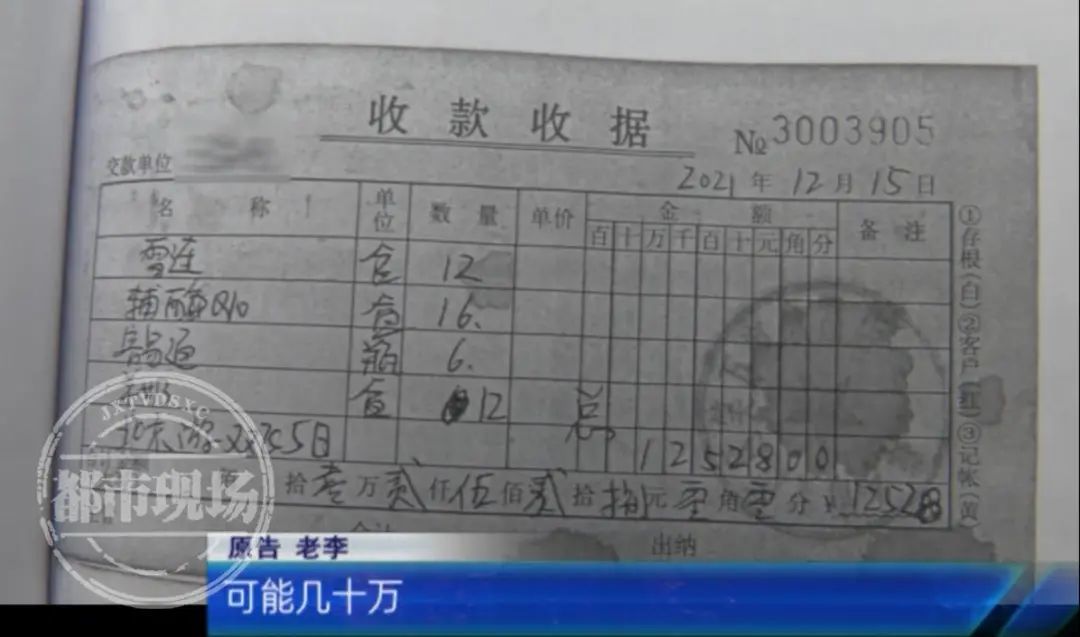 收款收据
№3003905
交款单位
2021年12月15日
名称 单位 数量 单价 金额 备注
百十万千百十元角分
雪莲 盒 12
辅酶Q10 盒 16.
瓶 6.
盒 12 总
5日 1252800
拾壹万贰仟伍佰贰拾捌元零角零分 ¥12528
出纳
①存根(白)②客户(红)③记帐(黄)
JXTVDSXC
都市现场
原告 老李
可能几十万